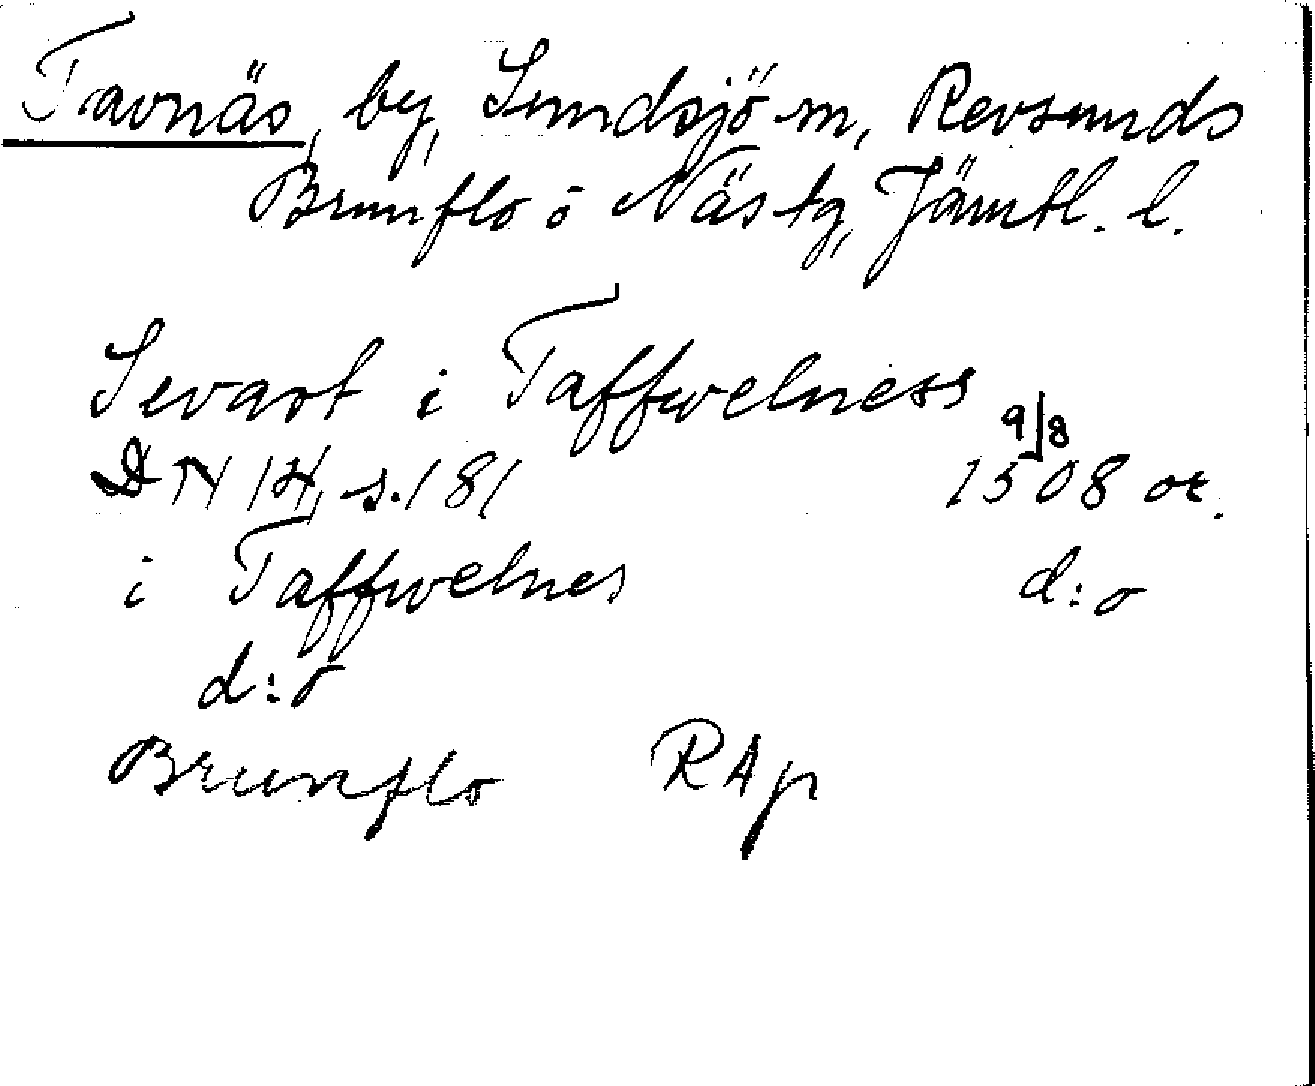 Tavnäs, by, Sundsjö sn, Revsunds
Brunflo o Näs tg, Jämtl. l.
Sevast i Taffwelness
9/8
DN 14, s. 181 1508 or.
i Taffwelnes d:o
d:o
Brunflo RAp